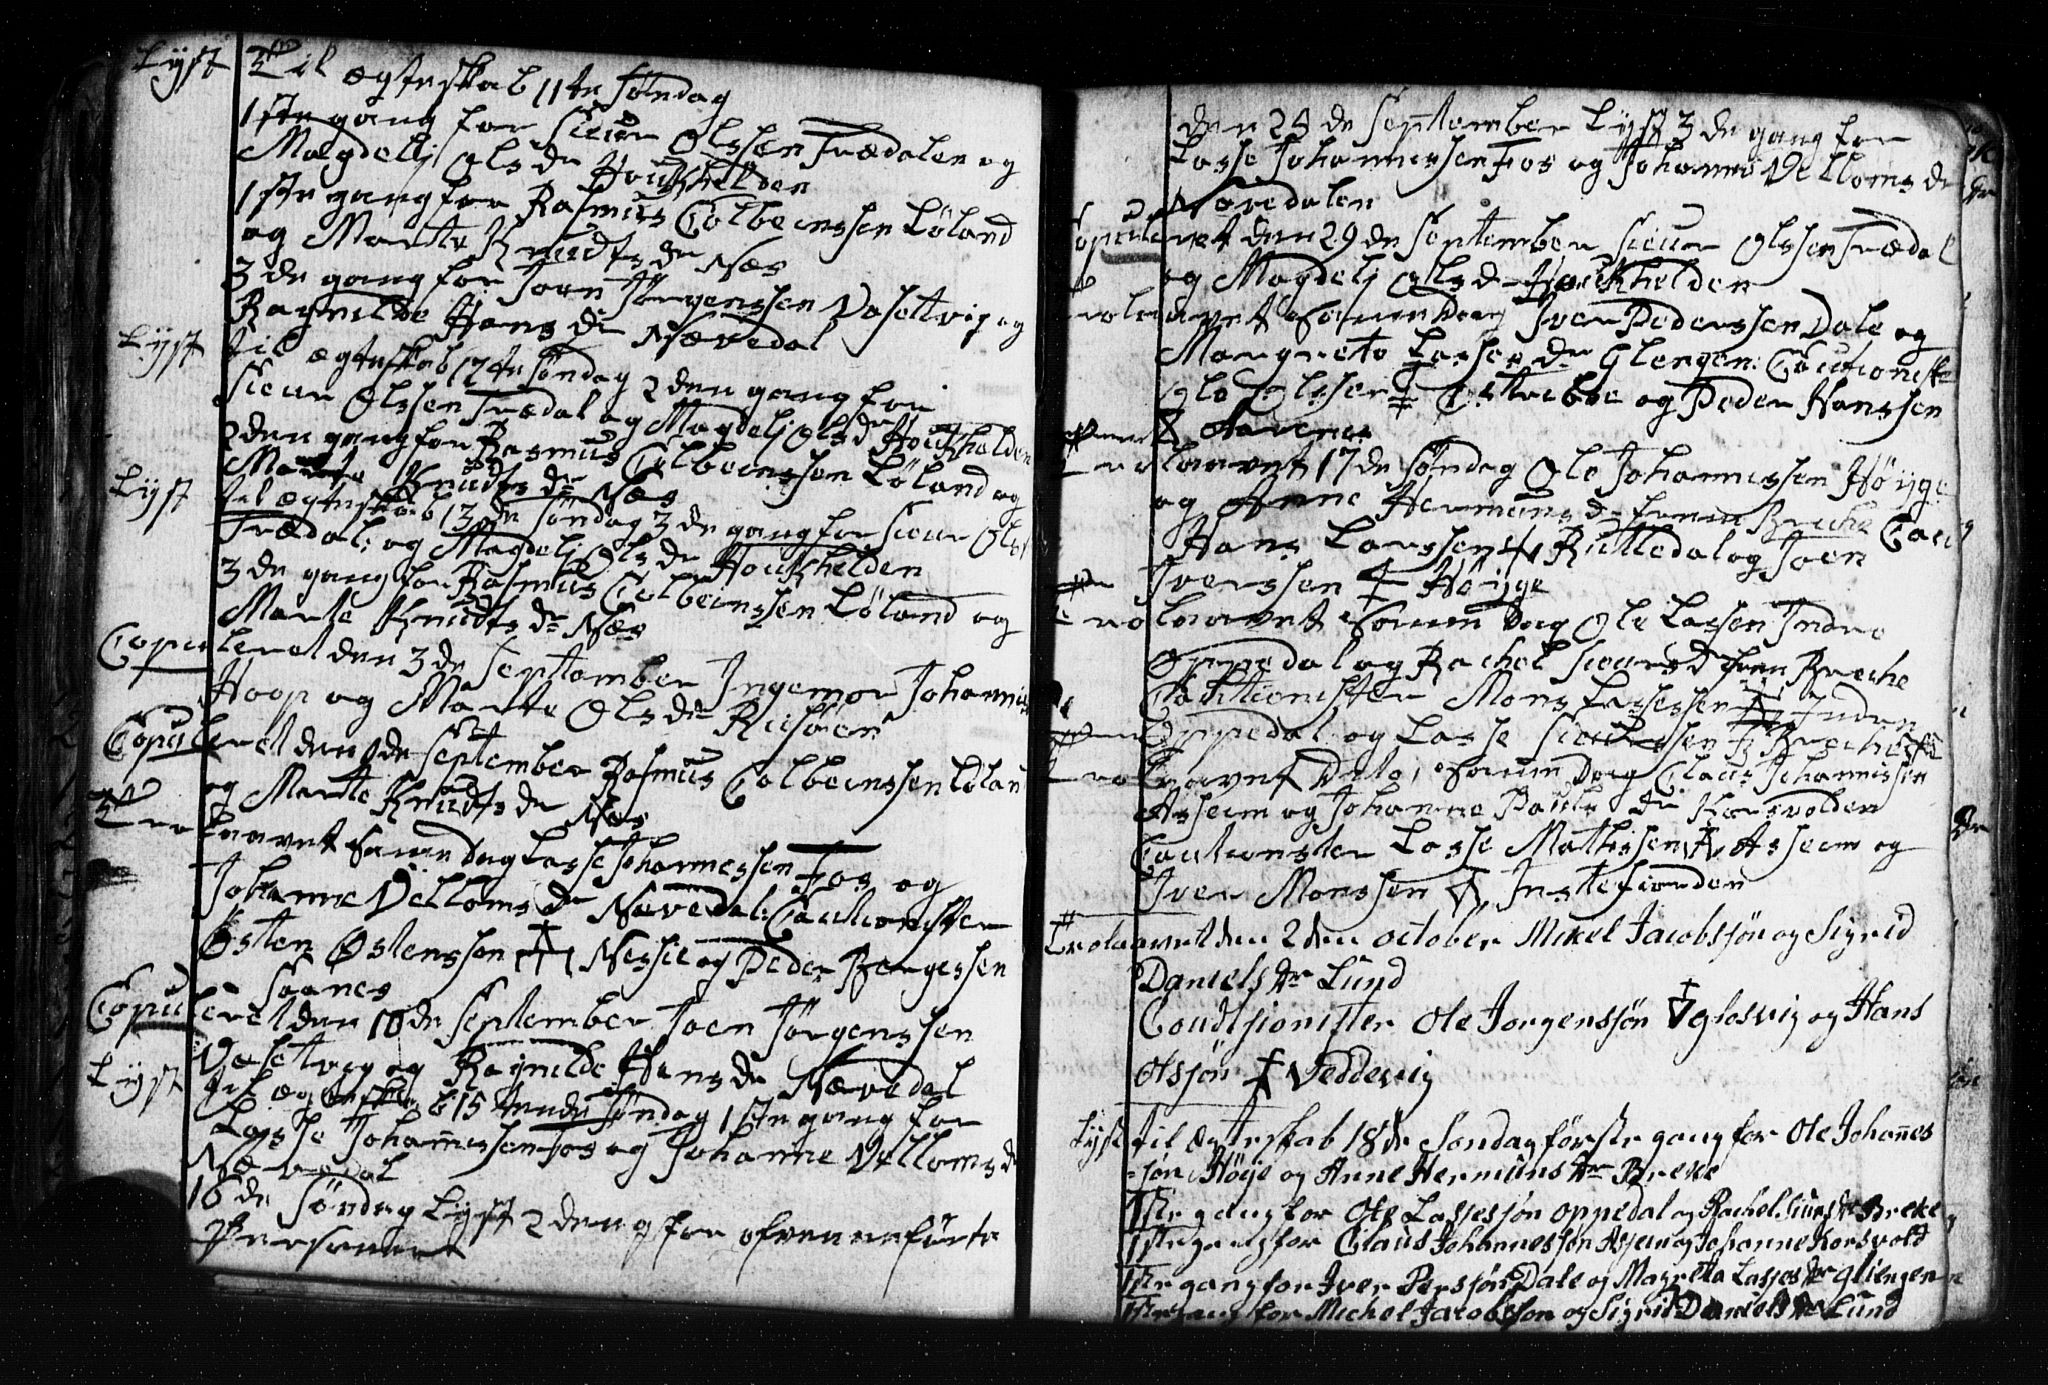 Lyst Til ægteskab 11te Søndag
1ste gang for Siur Olssen Trædalen og
Magdelj Olsdr Houkhelden
1ste gang for Rasmus Colbeinssen Løland
og Marte Knudtsdr Næs
3de gang for Joen Jørgenssen Vasetvig og
Ragnilde Hansdr Nævedal
Lyst til ægteskab 12te Søndag 2den gang for
Siur Olssen Trædal og Magdelj Olsdr Houkhelden
2den gang for Rasmus Colbeinssen Løland og
Marte Knudtsdr Næs
Lyst til ægteskab 13de Søndag 3de gang for Siur Ols
Trædal: og Magdelj Olsdr Houkhelden
3de gang for Rasmus Colbeinssen Løland og
Marte Knudtsdr Næs
Copuleret den 3de September Ingemor Johannis
Hoop og Marte Olsdr Risøen
Copuleret den de September Rasmus Colbeinssen Lølan
og Marte Knudtsdr Næs
Trolaavet Samme Dag Lasse Johannessen Fos og
Johanne Vellomsdr Nævedal: Cautionister
Østen Østenssen Nessie og Peder Børgessen
Saanes
Copuleret den 10de September Joen Jørgenssen
Vasetvig og Ragnilde Hansdr Nævedal
Lyst til ægteskab 15tende Søndag 1ste gang for
Lasse Johannessen Fos og Johanne Vellomsd
Nævedal
16de Søndag Lyst 2den g for ofvennefürte
Personer
den 24de September Lyst 3de gang for
Lasse Johannessen Fos og Johanne Vellomsdr
Nævedalen
Copuleret den 29de September Siur Olssen Trædal
og Magdelj Olsd Houkhelden
Trolaavet Samme Dag Iver Pederssen Dale og
Margrete Lassesdr Glengen: Cautioniste
Ole Olssen Østrebøe og Peder Hanssen

Trolaavet 17de Søndag Ole Johannessen Høyge
og Anne Hermunsd fræm Breche Caut
Hans Larssen Rutledal og Joen
Iverssen Høyge
Trolaavet Samme Dag Ole Lassen Indre
Oppedal og Rachel Siursd fræn Breche
Cautionister Mons Lassessen Indre
Oppedal og Lasse Siurssen Breche
Trolaavet Dito, Samme Dag Claus Johannissen
Asheim og Johanne Paulsdr Korsvolden
Cautionister Lasse Mathissen Asheim og
Iver Monssen Instefiorden
Trolaavet den 2den october Mikel Jacobsjøn og Sigrid
Daniels dr Lund
Coudtsionister Ole Jorgensjøn Vglosvig og Hans
Olsjøn Veddevig
Lyst til Ægteskab 18de Søndag første gang for Ole Johañes
-sjøn Höye og Anne Hermuns dr Breke
1ste gang for Ole Lassesjøn oppedal og Rachel Siursdr Breke
1ste gang for Claus Johannesjøn Asjem og Johanne Korsvold
1ste gang for Iver Persjøn Dale og Magreta Lasses dr gliengen
1ste gang for Michel Jacobsjon og Sigrid Daniels dr Lund